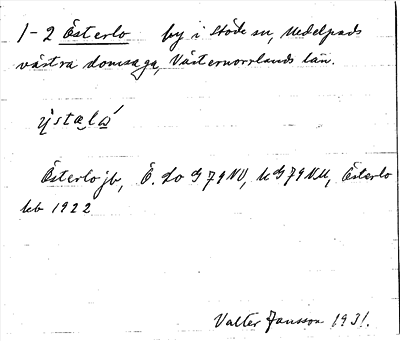 1-2 Österlo by i Stöde sn, Medelpads
västra domsaga, Västernorrlands län.
Österlo jb, Ö. Lo G 79 NV, Österlo
kb 1922
Valter Jansson 1931.